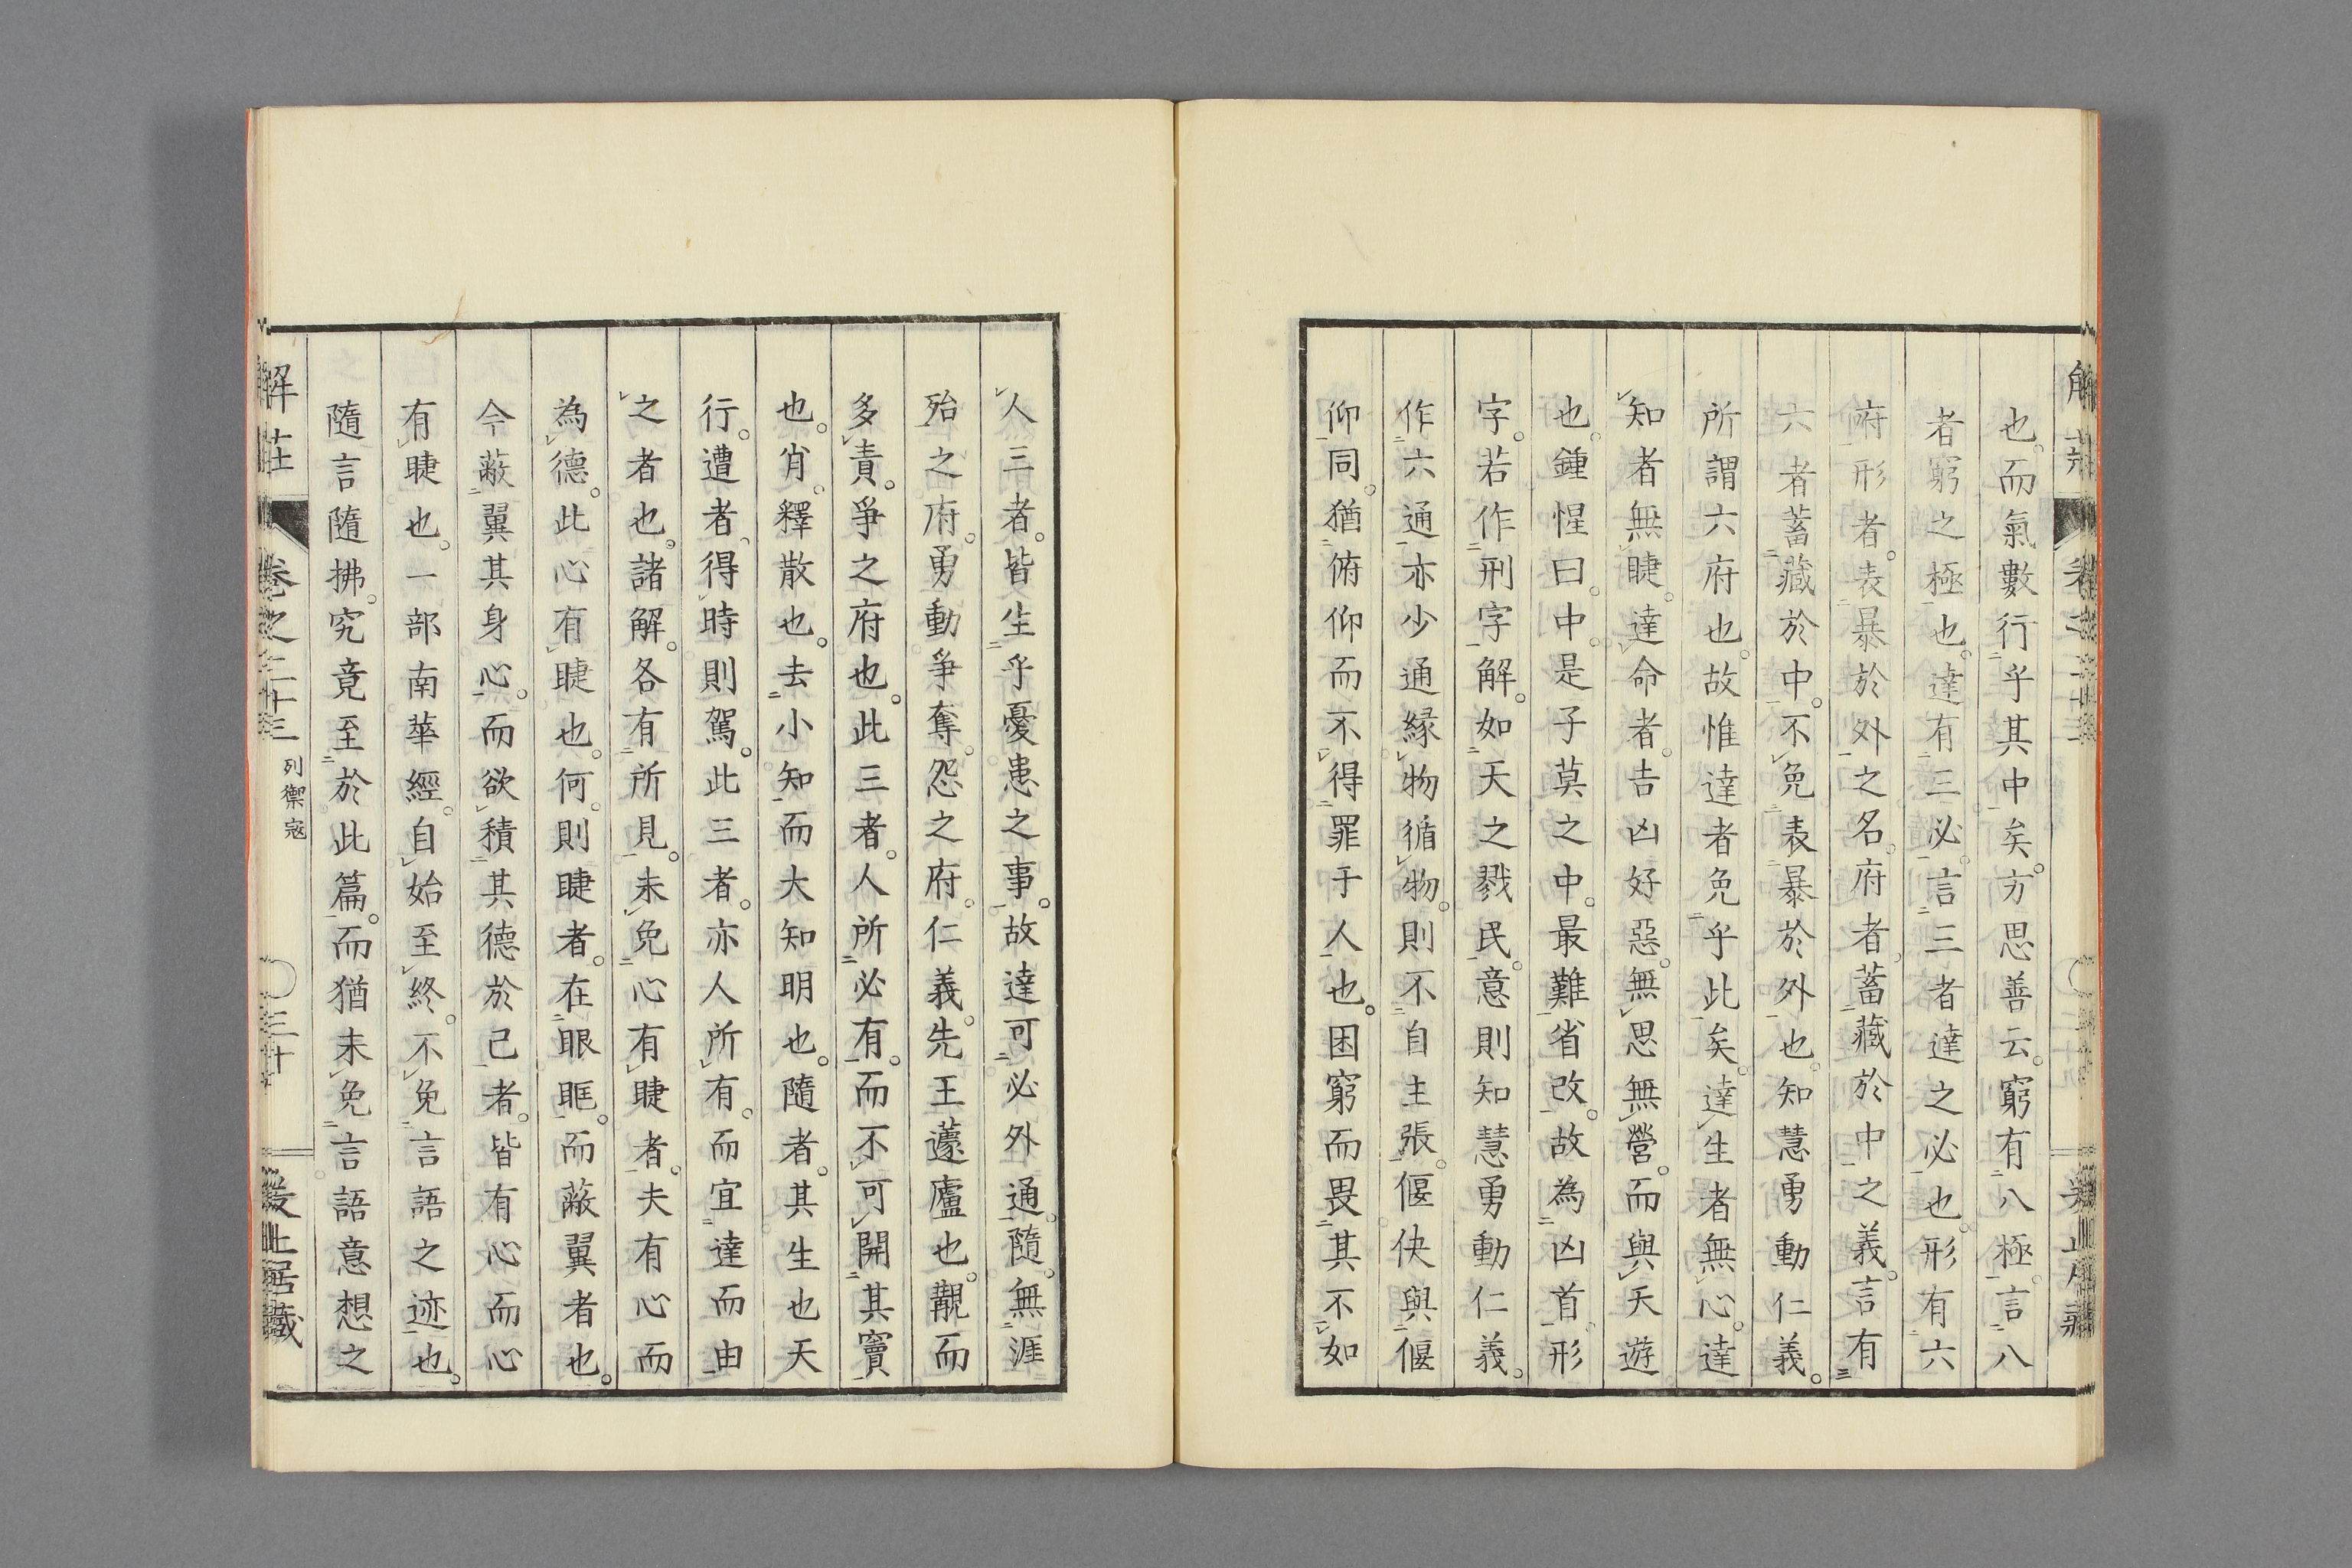 也而氣數行乎其中矣方思善云窮有八極言八
者窮之極也達有三必言三者達之必也形有六
府形者表暴於外之名府者蓄藏於中之義言有
六者蓄藏於中不免表暴於外也知慧勇動仁義
所謂六府也故惟達者免乎此矣達生者無心達
知者無睫達命者吉凶好惡無思無營而與天遊
也鍾惺曰中是子莫之中最難省改故為凶首形
字若作刑字解如天之戮民意則知慧勇動仁義
作六通亦少通緣物循物則不自主張偃佒與偃
仰同猶俯仰而不得罪于人也困窮而畏其不如
人三者皆生乎憂患之事故達可必外通隨無涯
殆之府勇動爭奪怨之府仁義先王蘧廬也覯而
多責爭之府也此三者人所必有而不可開其竇
也肖釋散也去小知而大知明也隨者其生也天
行遭者得時則駕此三者亦人所有而宜達而由
之者也諸解各有所見未免心有睫者夫有心而
為德此心有睫也何則睫者在眼眶而蔽翼者也
今蔽翼其身心而欲積其德於己者皆有心而心
有睫也一部南華經自始至終不免言語之迹也
隨言隨拂究竟至於此篇而猶未免言語意想之
解莊 卷之二十三 列禦寇 三十 居藏